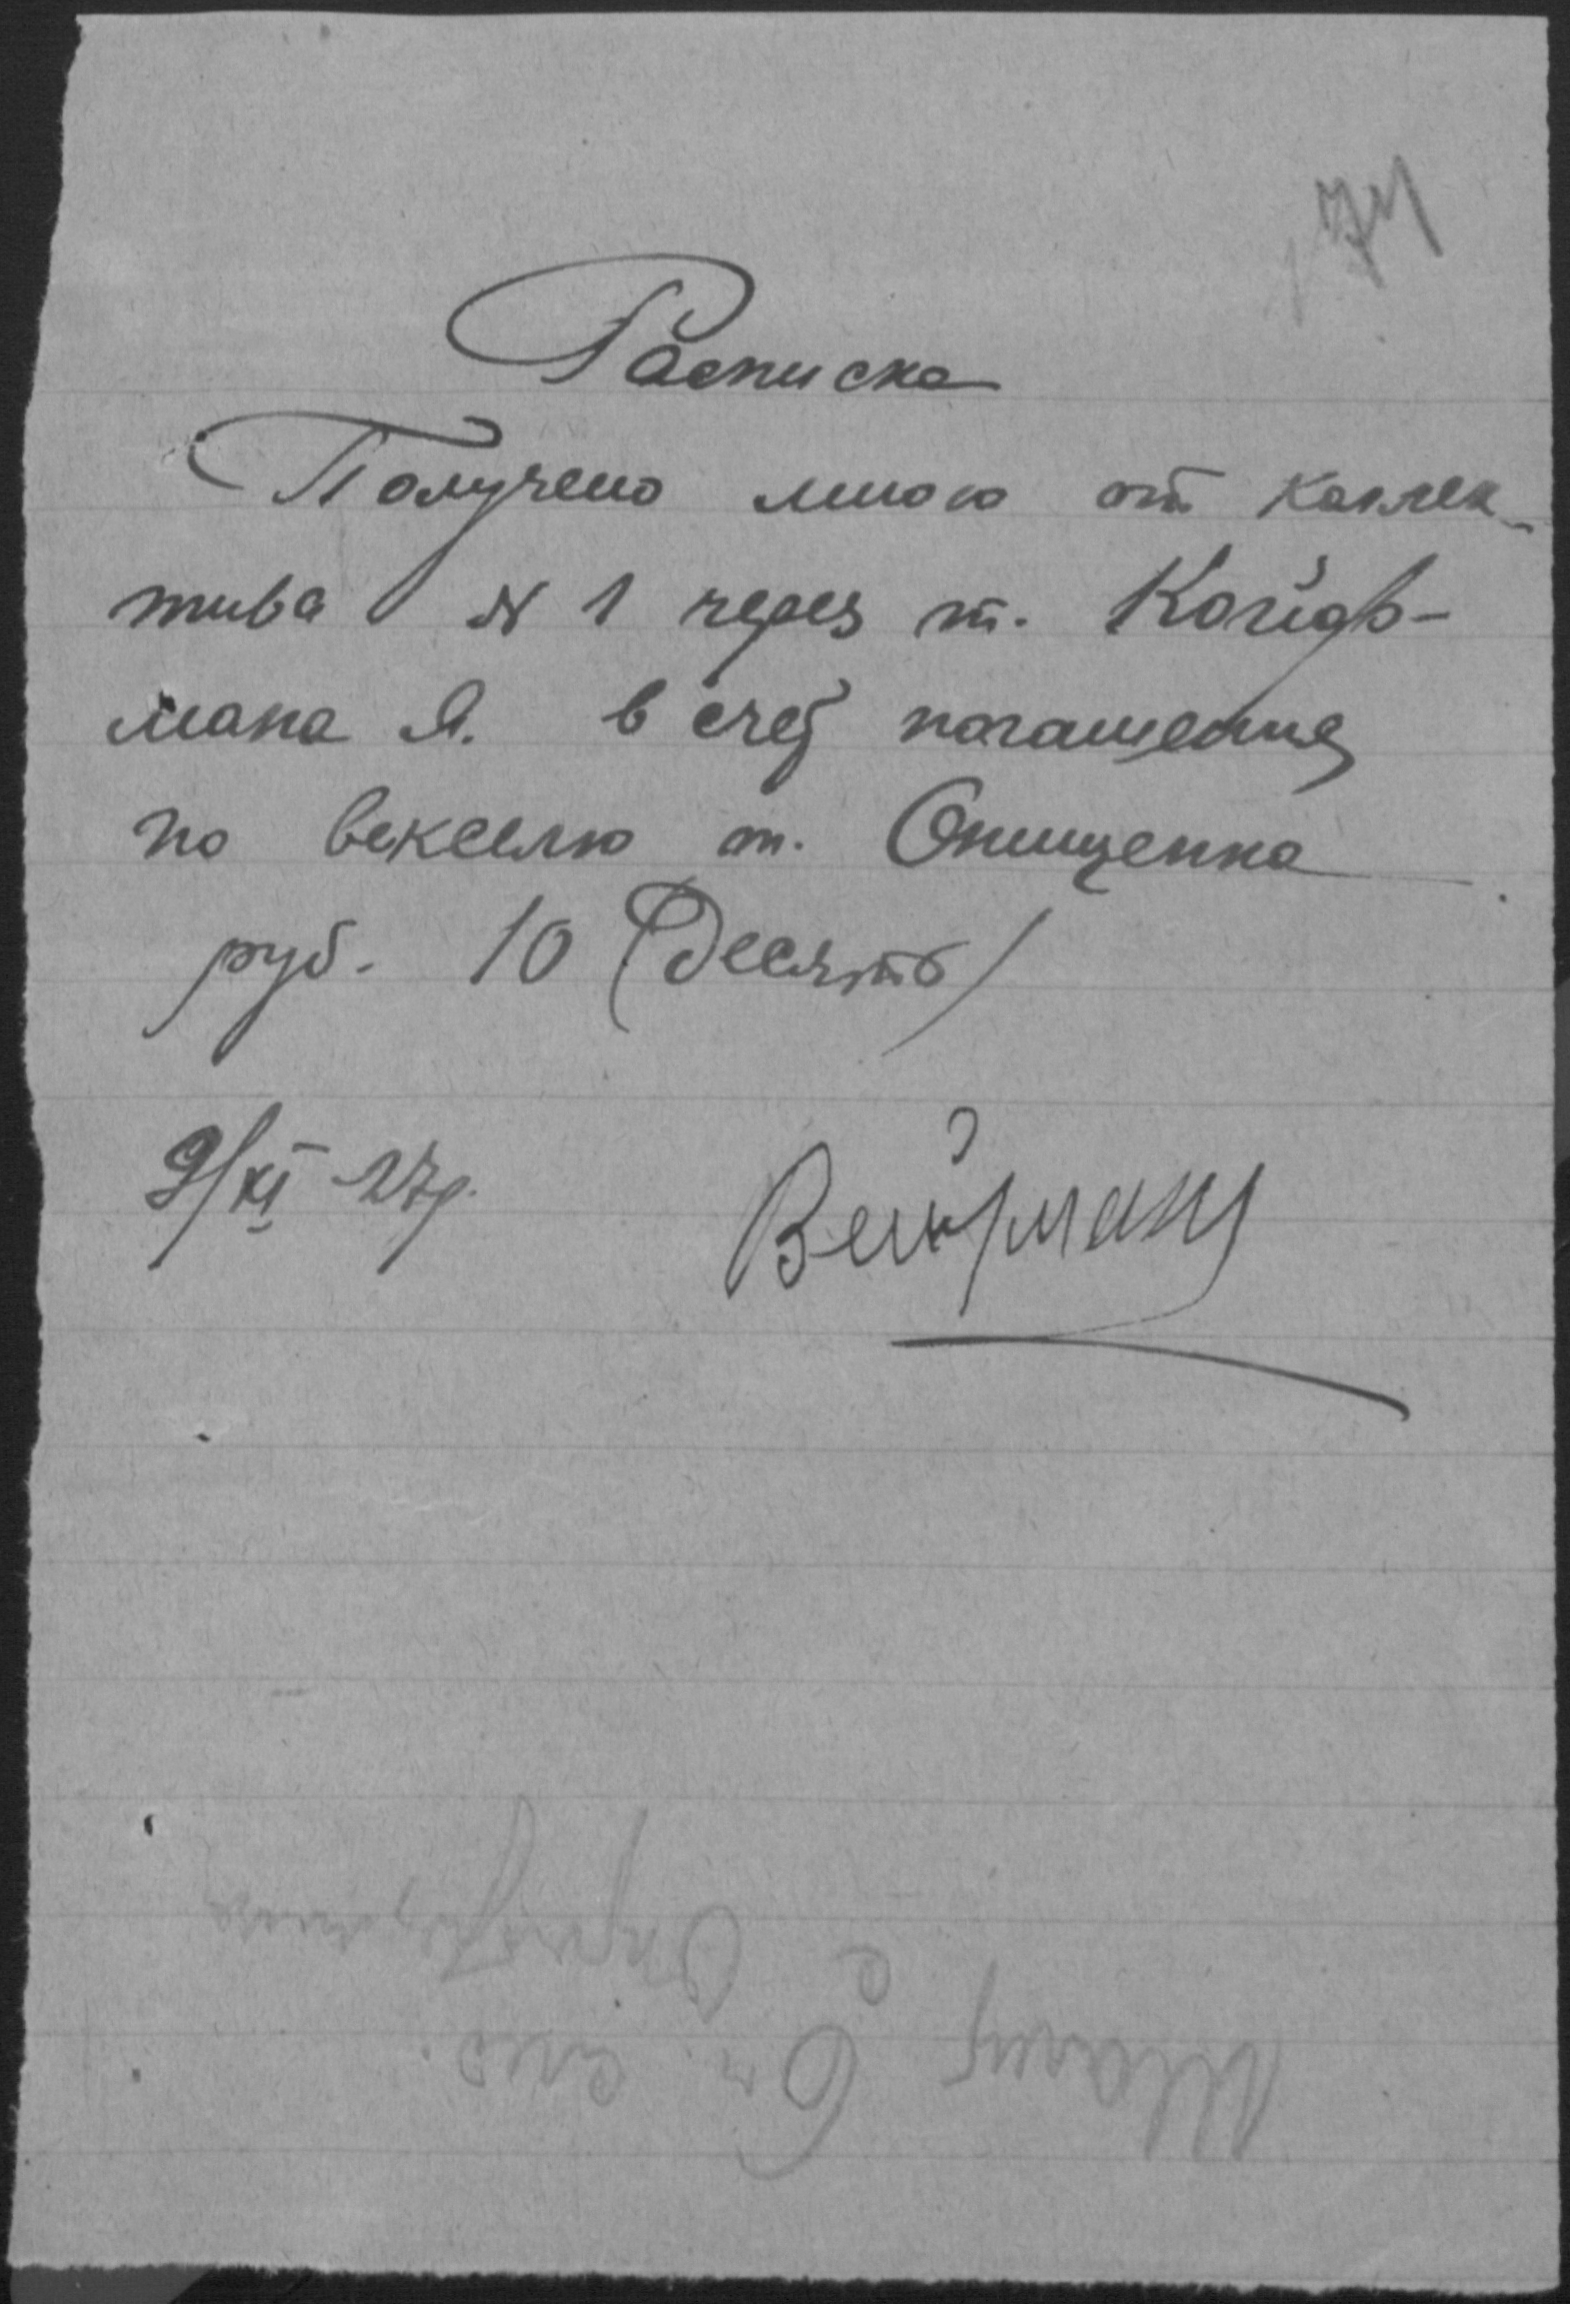 74
Расписка
Получено мною от коллек-
тива № 1 через т. Койф-
мана Я. в счет погашения
по векселю т. Онищенко
руб. 10 (десять)
9/XI 27 г.
Вейцман